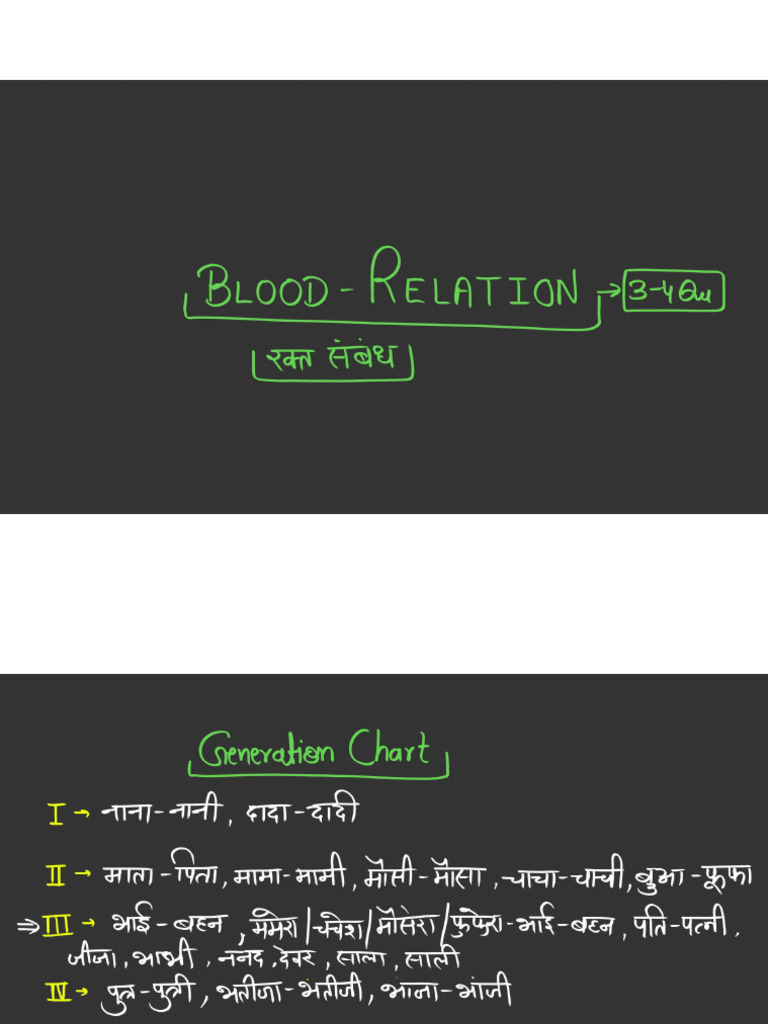 BLOOD-RELATION → 3-4 Qu
रक्त संबंध
Generation Chart
I → नाना-नानी, दादा-दादी
II → माता-पिता, मामा-मामी, मौसी-मौसा, चाचा-चाची, बुआ-फूफा
⇒ III → भाई-बहन, ममेरा/चचेरा/मौसेरा/फुफेरा-भाई-बहन, पति-पत्नी,
जीजा, भाभी, ननद, देवर, साला, साली
IV → पुत्र-पुत्री, भतीजा-भतीजी, भांजा-भांजी